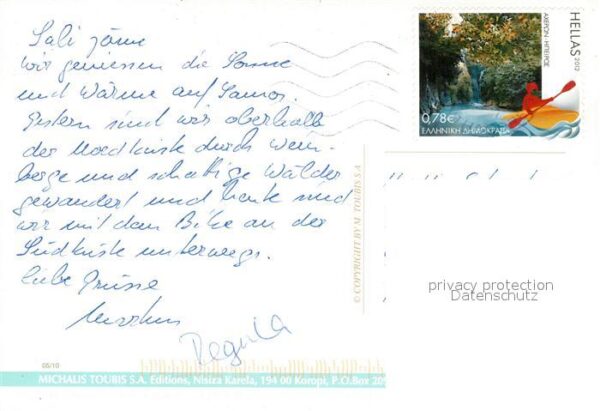 Sali zäme
wir geniessen die Sonne
und Wärme auf Samos.
Gestern sind wir oberhalb
der Nordküste durch Wein-
berge und schattige Wälder
gewandert und heute sind
wir mit dem Bike an der
Südküste unterwegs.
Liebe Grüsse
Markus
Regula
HELLAS 2012
ΑΧΕΡΩΝ - ΗΠΕΙΡΟΣ
0,78€
ΕΛΛΗΝΙΚΗ ΔΗΜΟΚΡΑΤΙΑ
© COPYRIGHT BY M. TOUBIS S.A
privacy protection
Datenschutz
05/10
MICHALIS TOUBIS S.A. Editions, Nisiza Karela, 194 00 Koropi, P.O.Box